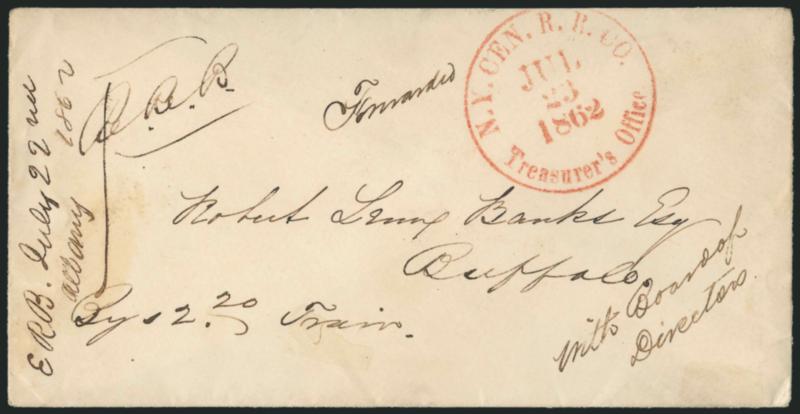 E R B. July 22nd
Albany 1862
R. R. B.
Forwarded
N.Y. CEN. R. R. CO.
JUL
23
1862
Treasurer's Office
Robert Lenox Banks Esq
Buffalo
By 2.20 Train.
with Board of
Directors.